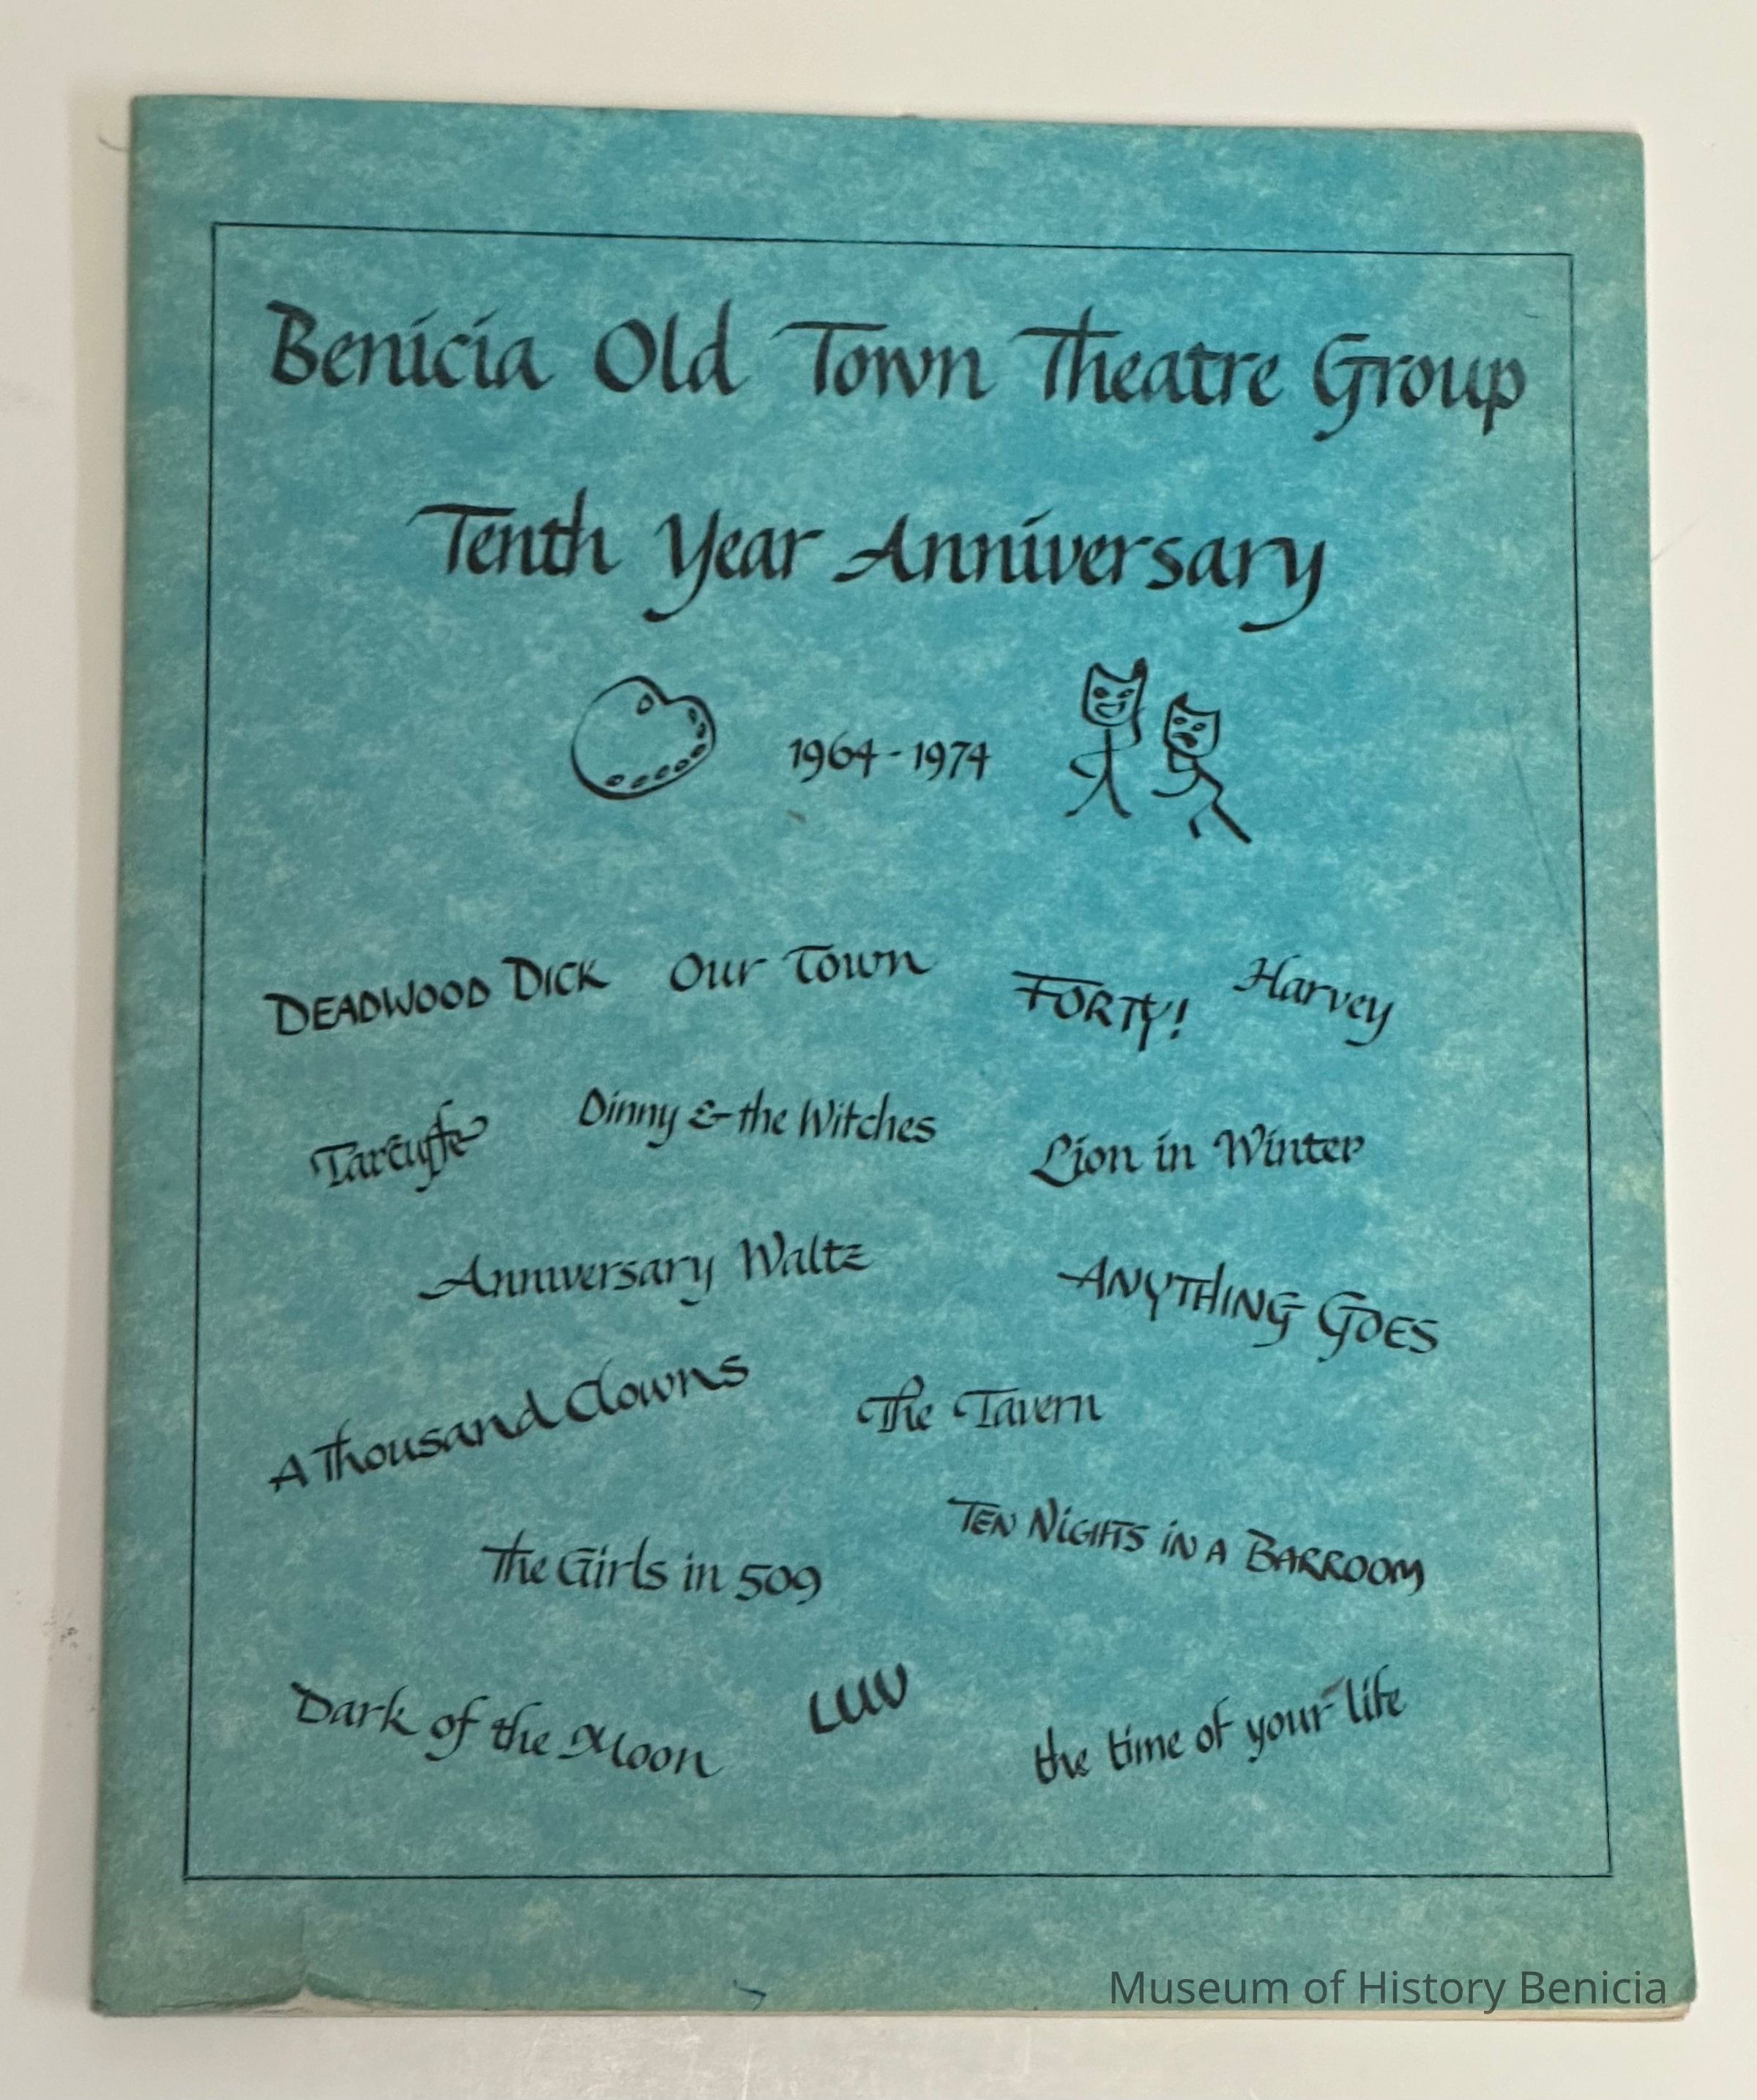 Benicia Old Town Theatre Group
Tenth Year Anniversary
1964-1974
DEADWOOD DICK Our Town FORTY! Harvey
Tartuffe Dinny & the Witches Lion in Winter
Anniversary Waltz ANYTHING GOES
A Thousand Clowns The Tavern
The Girls in 509 TEN NIGHTS IN A BARROOM
Dark of the Moon LUV the time of your life
Museum of History Benicia